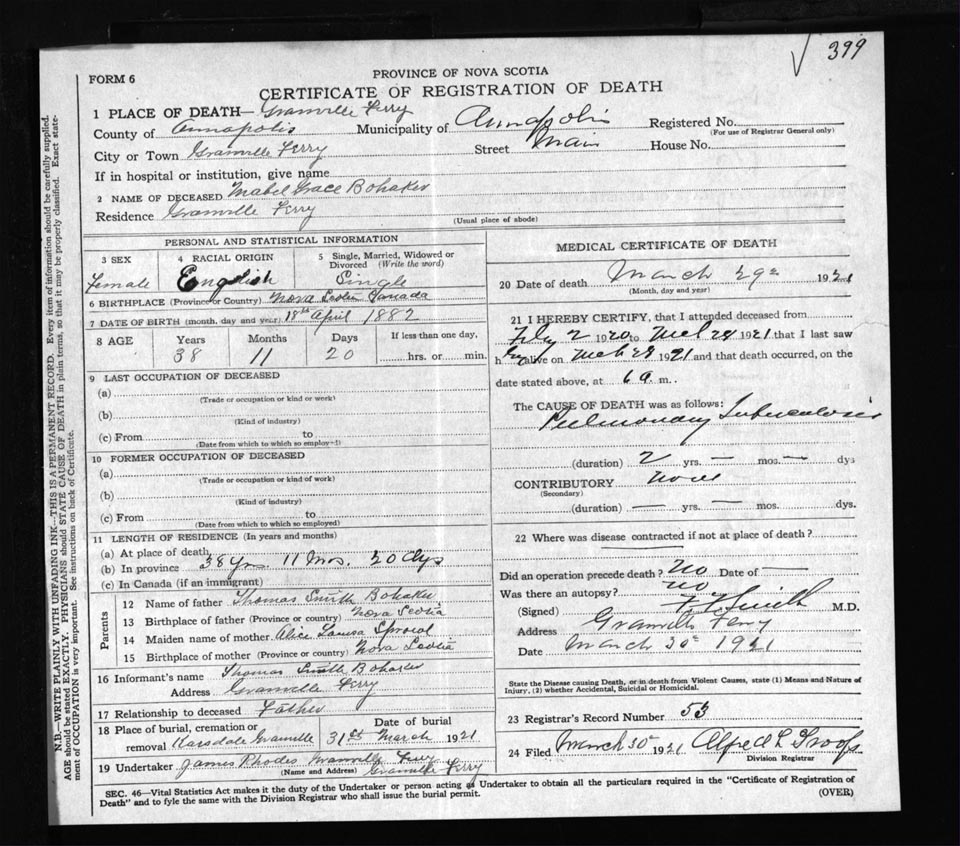 399
FORM 6
PROVINCE OF NOVA SCOTIA
CERTIFICATE OF REGISTRATION OF DEATH
1 PLACE OF DEATH— Granville Ferry
County of Annapolis Municipality of Annapolis Registered No.
(For use of Registrar General only)
City or Town Granville Ferry Street Main House No.
If in hospital or institution, give name
2 NAME OF DECEASED Mabel Grace Bohaker
Residence Granville Ferry
(Usual place of abode)
PERSONAL AND STATISTICAL INFORMATION
3 SEX 4 RACIAL ORIGIN 5 Single, Married, Widowed or Divorced (Write the word)
Female English Single
6 BIRTHPLACE (Province or Country) Nova Scotia Canada
7 DATE OF BIRTH (month, day and year) 18th April 1882
8 AGE Years Months Days If less than one day,
38 11 20 hrs. or min.
9 LAST OCCUPATION OF DECEASED
(a)
(Trade or occupation or kind or work)
(b)
(Kind of industry)
(c) From to
(Date from which to which so employed)
10 FORMER OCCUPATION OF DECEASED
(a)
(Trade or occupation or kind of work)
(b)
(Kind of industry)
(c) From to
(Date from which to which so employed)
11 LENGTH OF RESIDENCE (In years and months)
(a) At place of death
(b) In province 38 yrs. 11 Mos. 20 dys
(c) In Canada (if an immigrant)
Parents
12 Name of father Thomas Smith Bohaker
13 Birthplace of father (Province or country) Nova Scotia
14 Maiden name of mother Alice Louisa Sprowl
15 Birthplace of mother (Province or country) Nova Scotia
16 Informant's name Thomas Smith Bohaker
Address Granville Ferry
17 Relationship to deceased Father
18 Place of burial, cremation or removal Karsdale Granville Date of burial 31st March 1921
19 Undertaker James Rhodes Granville Ferry
(Name and Address) Granville Ferry
MEDICAL CERTIFICATE OF DEATH
20 Date of death March 29th 1921
(Month, day and year)
21 I HEREBY CERTIFY, that I attended deceased from
Feby 2 1920 to Mch 29 1921 that I last saw
her alive on Mch 28 1921 and that death occurred, on the
date stated above, at 6 a. m.
The CAUSE OF DEATH was as follows:
Pulmonary Tuberculosis
(duration) 2 yrs. — mos. — dys
CONTRIBUTORY None
(Secondary)
(duration) — yrs. — mos. dys.
22 Where was disease contracted if not at place of death?
Did an operation precede death? No Date of —
Was there an autopsy? No
(Signed) F F Smith M.D.
Address Granville Ferry
Date March 30th 1921
State the Disease causing Death, or in death from Violent Causes, state (1) Means and Nature of
Injury, (2) whether Accidental, Suicidal or Homicidal.
23 Registrar's Record Number 53
24 Filed March 30th 1921 Alfred L
Division Registrar
SEC. 46—Vital Statistics Act makes it the duty of the Undertaker or person acting as Undertaker to obtain all the particulars required in the "Certificate of Registration of
Death" and to fyle the same with the Division Registrar who shall issue the burial permit. (OVER)
N.B.—WRITE PLAINLY WITH UNFADING INK—THIS IS A PERMANENT RECORD. Every item of information should be carefully supplied.
AGE should be stated EXACTLY. PHYSICIANS should STATE CAUSE OF DEATH in plain terms, so that it may be properly classified. Exact state-
ment of OCCUPATION is very important. See instructions on back of Certificate.